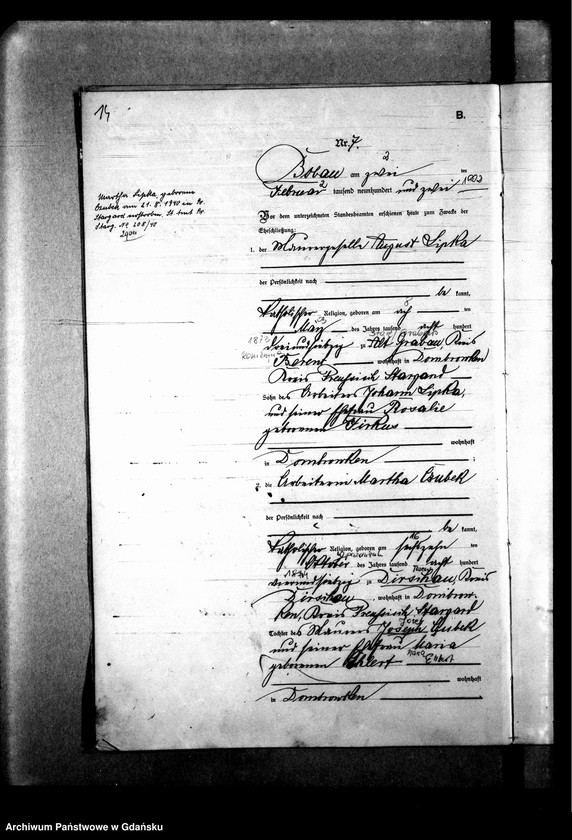 14
B.
Nr. 7.
2
Bobau am zwei ten
Februar tausend neunhundert und zwei 1902
2
Martha Lipka, geborene
Czubek am 21. 8. 1940 in Pr.
Stargard
Vor dem unterzeichneten Standesbeamten erschienen heute zum Zwecke der
Eheschließung:
1. der Maurergeselle August Lipka
der Persönlichkeit nach
be kannt,
8
katholischer Religion, geboren am acht ten
May des Jahres tausend acht hundert
1873
dreiundsiebzig zu Alt Grabau, Kreis
Berent wohnhaft in Dombrowken
Kreis Preußisch Stargard
Sohn des Arbeiters Johann Lipka,
und seiner Ehefrau Rosalie
geborenen Firkus
wohnhaft
in Dombrowken ;
2. die Arbeiterin Martha Czubek
der Persönlichkeit nach
be kannt,
16
katholischer Religion, geboren am sechzehn ten
Oktober des Jahres tausend acht hundert
1874
vierundsiebzig zu Dirschau, Kreis
Dirschau, wohnhaft in Dombrow-
ken, Kreis Preußisch Stargard
Józef
Tochter des Maurers Joseph Czubek
und seiner Ehefrau Maria
geborenen Ehlert Ehlert
wohnhaft
in Dombrowken
Archiwum Państwowe w Gdańsku